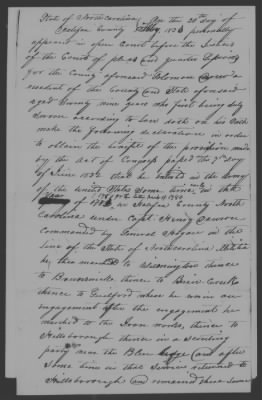 State of North Carolina, On the 20th day of
Halifax County May 1833 personally
appeared in open Court before the Justices
of the Court of pleas and quarter Sessions
for the County aforesaid Solomon a
resident of the County and State aforesaid
aged Seventy nine years who first being duly
sworn according to law doth on his Oath
make the following declaration in order
to obtain the benefit of the provision made
by the Act of Congress passed the 7th day
of June 1832 that he entered in the army
of the United States some time in the
year of in Halifax County North
Carolina under Capt. Henry Dawson
Commanded by General Hogan in the
line of the State of North Carolina Militia
he then marched to Wilmington thence
to Brunswick thence to Brier Creek
thence to Guilford where he was in an
engagement after the engagement he
marched to the Iron works, thence to
Hillsborough thence in a scouting
party near the Blue and after
some time in that Service returned to
Hillsborough and remained there some